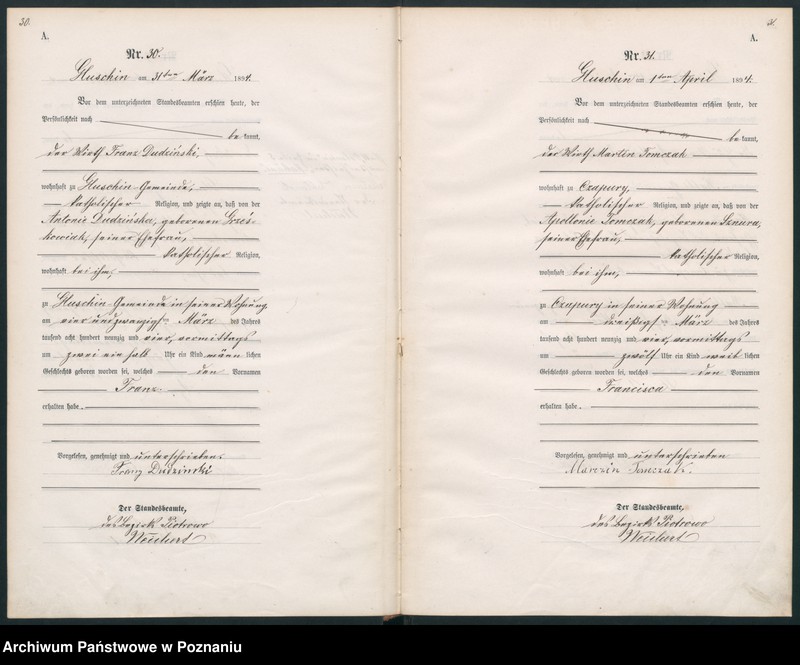 30.
A.
Nr. 30.
Gluschin am 31ten März 1894.
Vor dem unterzeichneten Standesbeamten erschien heute, der
Persönlichkeit nach
bekannt,
der Wirth Franz Dudziński,
wohnhaft zu Gluschin Gemeinde,
katholischer Religion, und zeigte an, daß von der
Antonie Dudzińska, geborenen Grześ-
kowiak, seiner Ehefrau,
katholischer Religion,
wohnhaft bei ihm,
zu Gluschin Gemeinde in seiner Wohnung,
am vier und zwanzigsten März des Jahres
tausend acht hundert neunzig und vier, vormittags
um zwei ein halb Uhr ein Kind männlichen
Geschlechts geboren worden sei, welches den Vornamen
Franz
erhalten habe.
Vorgelesen, genehmigt und unterschrieben.
Franz Dudzinski
Der Standesbeamte,
des Bezirks Piotrowo
31.
A.
Nr. 31.
Gluschin am 1ten April 1894.
Vor dem unterzeichneten Standesbeamten erschien heute, der
Persönlichkeit nach
bekannt,
der Wirth Martin Tomczak
wohnhaft zu Czapury,
katholischer Religion, und zeigte an, daß von der
Apollonie Tomczak, geborenen Sznura,
seiner Ehefrau,
katholischer Religion,
wohnhaft bei ihm,
zu Czapury in seiner Wohnung
am dreißigsten März des Jahres
tausend acht hundert neunzig und vier, vormittags
um zwölf Uhr ein Kind weiblichen
Geschlechts geboren worden sei, welches den Vornamen
Francisca
erhalten habe.
Vorgelesen, genehmigt und unterschrieben
Marczin Tomczak.
Der Standesbeamte,
des Bezirks Piotrowo
Archiwum Państwowe w Poznaniu